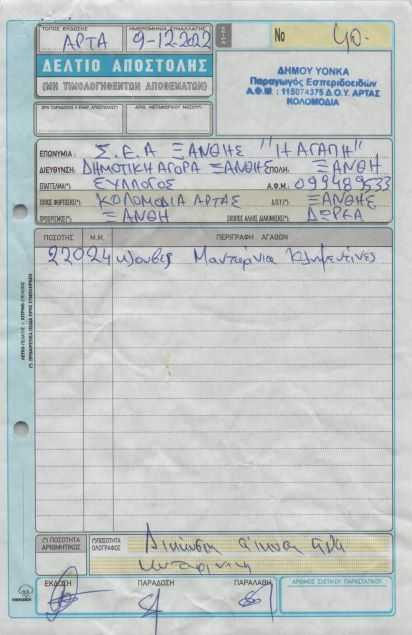 ΤΟΠΟΣ ΕΚΔΟΣΗΣ ΗΜΕΡΟΜΗΝΙΑ
ΑΡΤΑ 9-12-2022 No 40.
ΔΕΛΤΙΟ ΑΠΟΣΤΟΛΗΣ
(ΜΗ ΤΙΜΟΛΟΓΗΘΕΝΤΩΝ ΑΠΟΘΕΜΑΤΩΝ)
ΔΗΜΟΥ ΥΟΝΚΑ
Παραγωγός Εσπεριδοειδών
Α.Φ.Μ.: 115074375 Δ.Ο.Υ. ΑΡΤΑΣ
ΚΟΛΟΜΟΔΙΑ
ΑΡΙΘ. ΜΕΤΑΦΟΡΙΚΟΥ ΜΕΣΟΥ
ΕΠΩΝΥΜΙΑ: Σ.Ε.Α ΞΑΝΘΗΣ "Η ΑΓΑΠΗ"
ΔΙΕΥΘΥΝΣΗ: ΔΗΜΟΤΙΚΗ ΑΓΟΡΑ ΞΑΝΘΗΣ ΠΟΛΗ: ΞΑΝΘΗ
ΕΠΑΓΓΕΛΜΑ(*): ΣΥΛΛΟΓΟΣ Α.Φ.Μ.: 099489533
ΤΟΠΟΣ ΦΟΡΤΩΣΗΣ(*): ΚΟΛΟΜΟΔΙΑ ΑΡΤΑΣ Δ.Ο.Υ(*): ΞΑΝΘΗΣ
ΠΡΟΟΡΙΣΜΟΣ(*): ΞΑΝΘΗ ΣΚΟΠΟΣ ΑΛΛΗΣ ΔΙΑΚΙΝΗΣΗΣ(*): ΔΩΡΕΑ
ΠΟΣΟΤΗΣ Μ.Μ. ΠΕΡΙΓΡΑΦΗ ΑΓΑΘΩΝ
κλουβες Μανταρίνια Κλημεντίνες
(*) ΠΟΣΟΤΗΤΑ ΑΡΙΘΜΗΤΙΚΩΣ (*) ΠΟΣΟΤΗΤΑ ΟΛΟΓΡΑΦΩΣ
ΕΚΔΟΣΗ ΠΑΡΑΔΟΣΗ ΠΑΡΑΛΑΒΗ ΑΡΙΘΜΟΣ ΣΧΕΤΙΚΟΥ ΠΑΡΑΣΤΑΤΙΚΟΥ